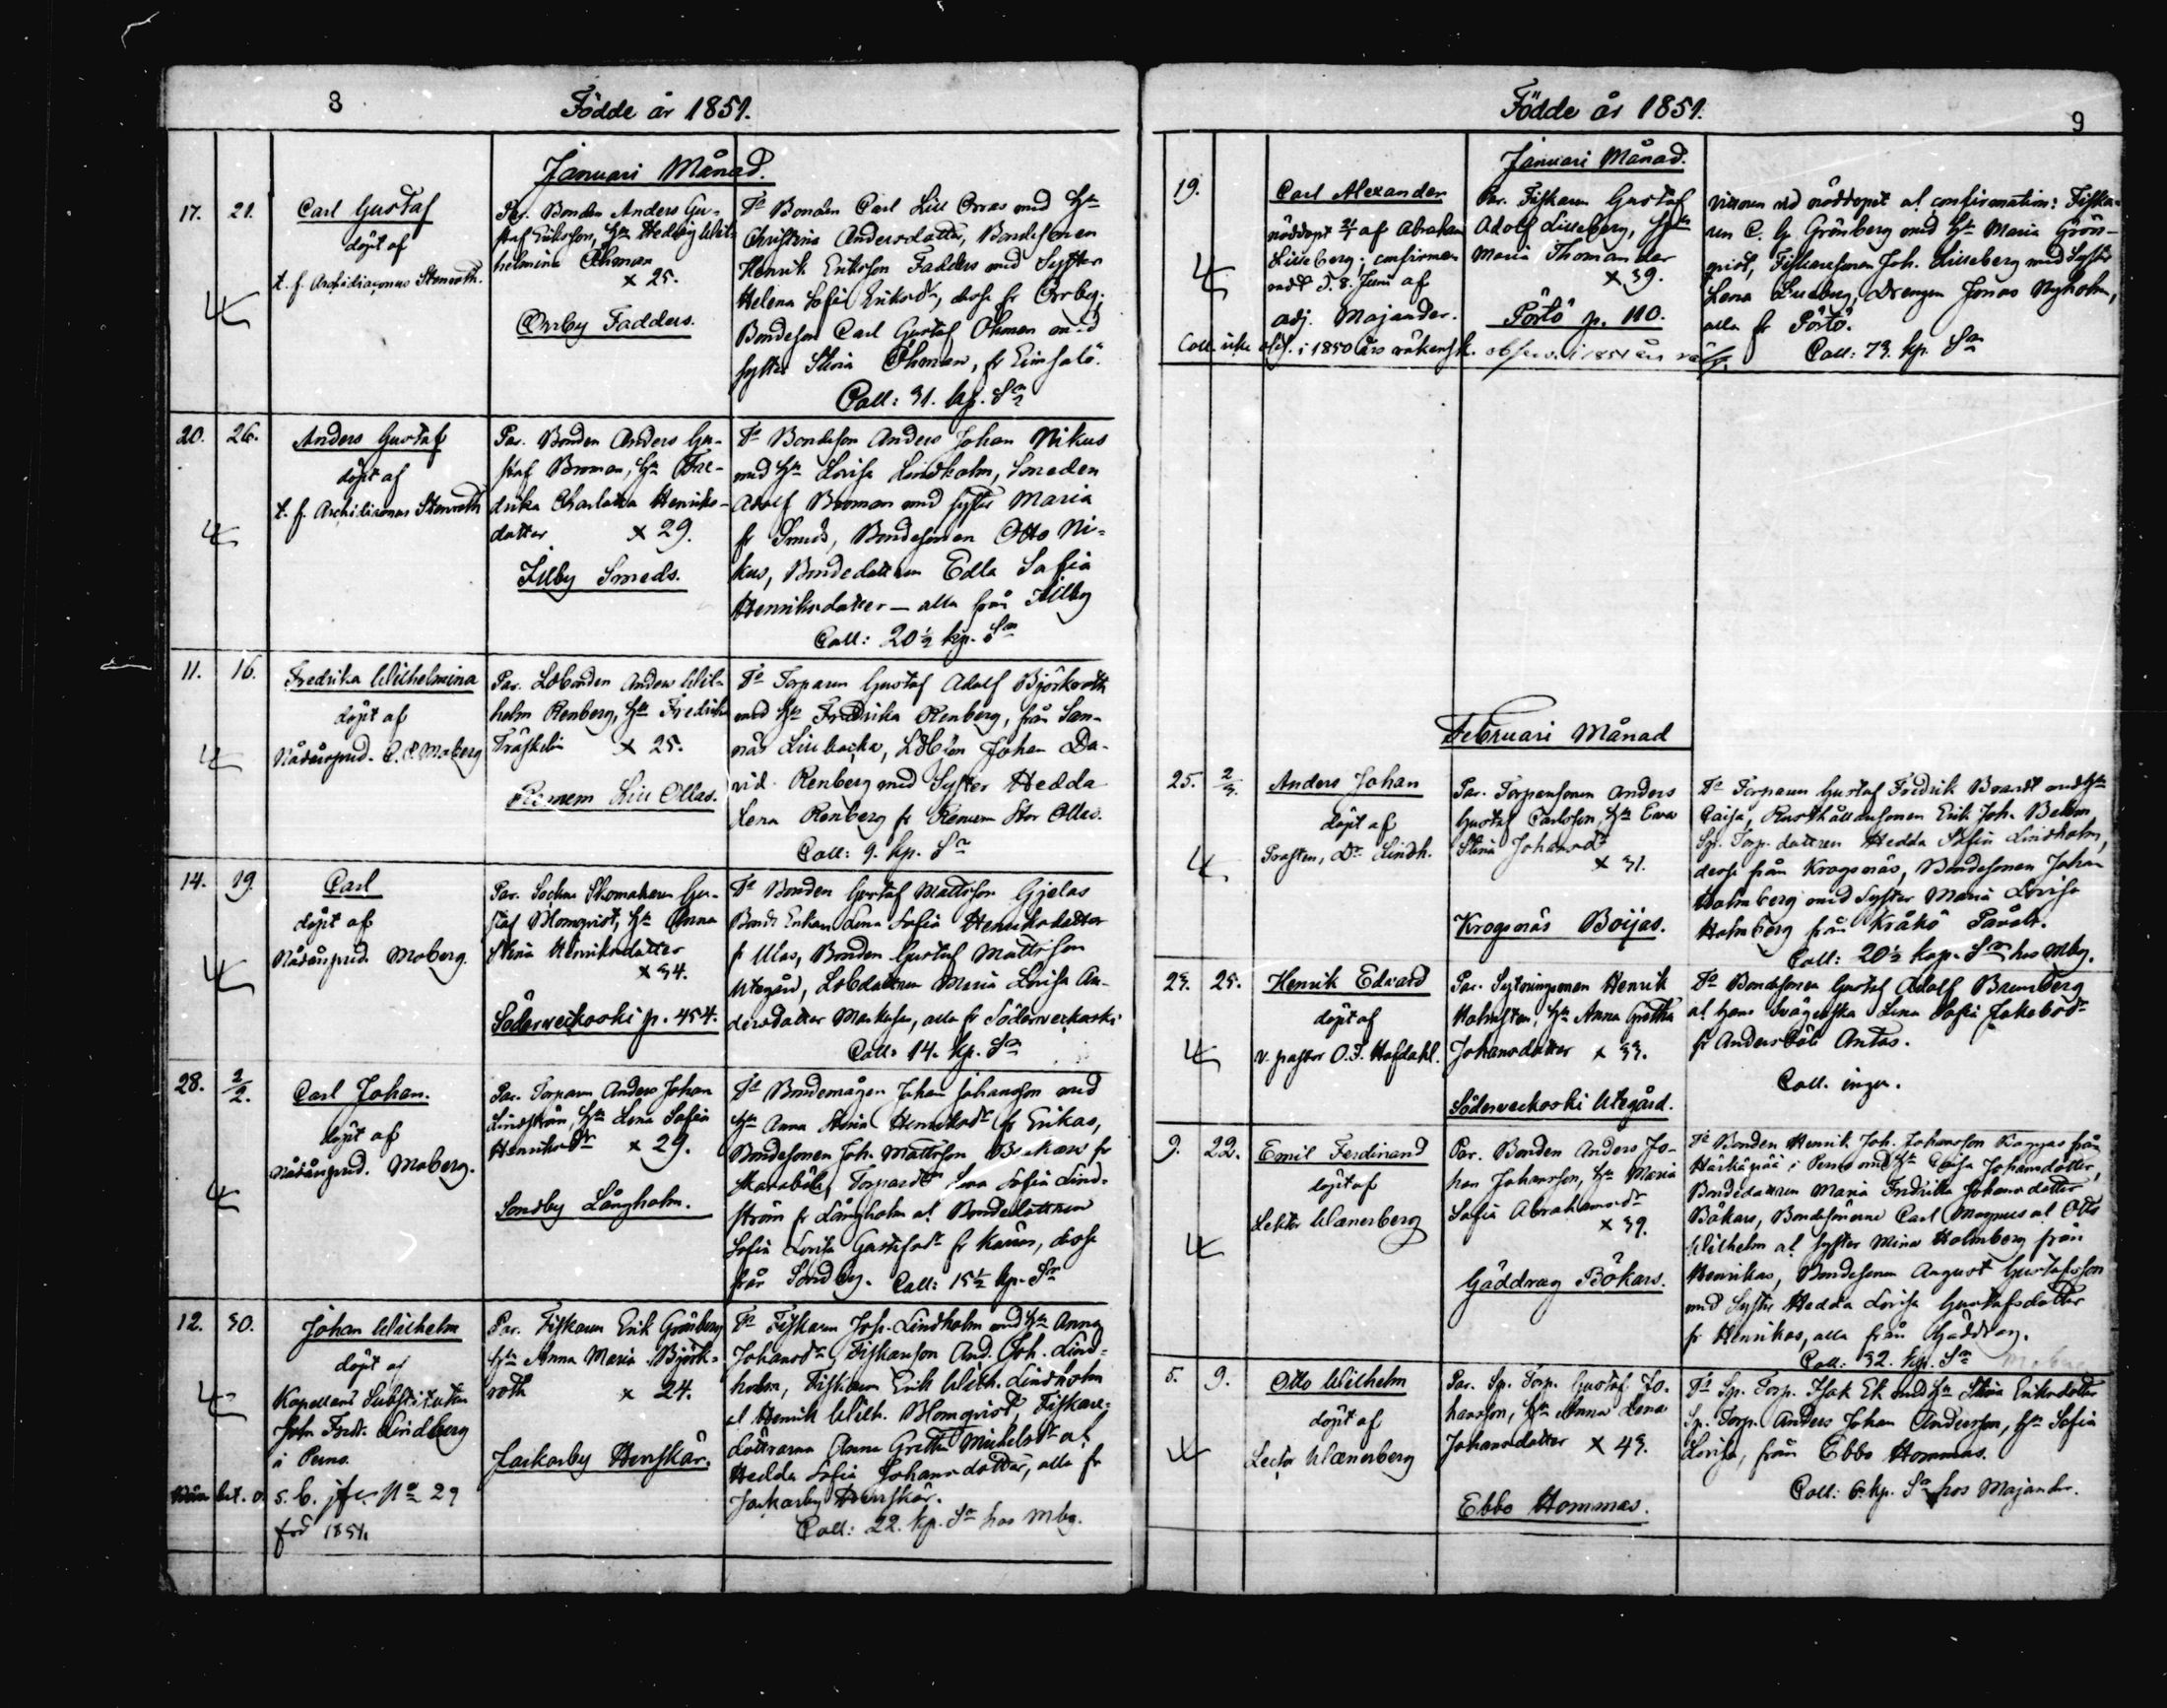 8
Födde år 1851.
Januari Månad.
17. 21. Carl Gustaf
döpt af
t. f. Archidiaconus Stenroth.
Par. Bonden Anders Gu-
staf Eriksson, Hu Hedvig Wil-
helmina Öhman
x 25.
Orrby Fadders.
Fa Bonden Carl Lill Orras med Hu
Christina Andersdotter, Bondesonen
Henrik Eriksson Fadders med Syster
Helena Sofia Eriksdr, desse fr Orrby;
Bondeson Carl Gustaf Öhman med
syster Stina Öhman, fr Eimsalö.
Coll: 31. kp. Sr
20. 26. Anders Gustaf
döpt af
t. f. Archidiaconus Stenroth
Par. Bonden Anders Gu-
staf Broman, Hu Fre-
drika Charlotta Henriks-
datter x 29.
Illby Smeds.
Fa Bondeson Anders Johan Nikus
med Hu Lovisa Lindholm, Smeden
Adolf Broman med syster Maria
fr Smeds, Bondesonen Otto Ni-
kus, Bondedottren Edla Sofia
Henriksdatter — alla från Illby
Coll: 20½ kp. Sr
11. 16. Fredrika Wilhelmina
döpt af
Nådårspred. C. E. Moberg
Par. Lbonden Anders Wil-
helm Renberg, Hu Fredrika
Träskelin x 25.
Renum Lill Ollas.
Fa Torparen Gustaf Adolf Björkroth
med Hu Fredrika Renberg, från San-
näs Lillbacka, Johan Da-
vid Renberg med Syster Hedda
Lena Renberg fr Renum Stor Ollas.
Coll: 9. kp. Sr
14. 19. Carl
döpt af
Nådårspred. Moberg.
Par. Sockne Skomakaren Gu-
staf Blomqvist, Hu Anna
Stina Henriksdatter
x 34.
Söderveckoski p. 454.
Fa Bonden Gustaf Mattsson Gjelas
Bonde Enkan Lena Sofia Henriksdotter
fr Ulas, Bonden Gustaf Mattsson
Utegård, Lbdottren Maria Lovisa An-
dersdatter Markusas, alla fr Söderveckoski
Coll: 14. kp. Sr
28. 2/2. Carl Johan.
döpt af
Nådårspred. Moberg.
Par. Torparen Anders Johan
Lindström, Hu Lena Sofia
Henriksdr x 29.
Sondby Långholm.
Fa Bondemågen Johan Johansson med
Hu Anna Stina Henriksdr fr Erikas,
Bondesonen Joh. Mattsson Beckars fr
Skarabäle, Torparedr Lena Sofia Lind-
ström fr Långholm at Bondedottren
Sofia Lovisa Gustafsdr fr Karras, desse
från Sondby. Coll: 15½ kp. Sr
12. 30. Johan Wilhelm
döpt af
Kapellans Substituten
John Fredr. Lindberg
i Perno.
s. b. jfr No 29
född 1851.
Par. Fiskaren Erik Grönberg
Hu Anna Maria Björk-
roth x 24.
Jackarby Hemskär.
Fa Fiskaren Joh. Lindholm med Hu Anna
Johansdr, Fiskareson And. Joh. Lind-
holm, Fiskaren Erik Wilh. Lindholm
at Henrik Wilh. Blomqvist, Fiskare-
döttrarna Anna Greta Michelsdr at
Hedda Sofia Johansdotter, alla fr
Jackarby Hemskär.
Coll: 22. kp. Sr hos Mbg.
Födde år 1851.
9
Januari Månad.
19. Carl Alexander
nöddöpt 21/1 af Abraham
Lilleberg; confirme-
radt d. 8. Juni af
Adj. Majander.
Coll. icke obs. i 1850 års räkensk. observ. i 1851 års räk.
Par. Fiskaren Gustaf
Adolf Lilleberg, Hu
Maria Thomander
x 39.
Pörtö p. 110.
Vittnen vid nöddopet at confirmation: Fiska-
ren C. G. Grönberg med Hu Maria Grön-
qvist, Fiskaresonen Joh. Lilleberg med Syster
Lena Lilleberg, Drengen Jonas Nyholm,
alla fr Pörtö.
Coll: 73. kp. Sr
Februari Månad
25. 2/3. Anders Johan
döpt af
Prosten, Dr Lindh.
Par. Torparesonen Anders
Gustaf Carlsson, Hu Eva
Stina Johansdr
x 31.
Krogsnäs Boijas.
Fa Torparen Gustaf Fredrik Brandt med Hu
Caisa, Rusthållaresonen Erik Joh. Bekom
Sp. Torp. dottren Hedda Sofia Lindholm,
desse från Krogsnäs, Bondesonen Johan
Holmberg med Syster Maria Lovisa
Holmberg från Kråkö Pavals.
Coll: 20½ kop. Sr hos Mbg.
23. 25. Henrik Edvard
döpt af
v. pastor O. I. Hofdahl.
Par. Sytningsman Henrik
Holmsten, Hu Anna Gretha
Johansdotter x 33.
Söderveckoski Utegård.
Fa Bondesonen Gustaf Adolf Baumberg
at hans Svägerska Lena Sofia Jakobsdr
fr Andersböle Antas.
Coll. ingen.
9. 22. Emil Ferdinand
döpt af
Lektor Wanerberg
Par. Bonden Anders Jo-
han Johansson, Hu Maria
Sofia Abrahamsdr
x 39.
Gäddrag Bökars.
Fa Bonden Henrik Joh. Johansson från
Härkäpää i Perno med Hu Caisa Johansdotter,
Bondedottren Maria Fredrika Johansdotter
Bökars, Bondesönerne Carl Magnus at Otto
Wilhelm at syster Mina Holmberg från
Henrikas, Bondesonen August Gustafsson
med Syster Hedda Lovisa Gustafsdotter
fr Henrikas, alla från Gäddrag.
Coll: 32. kp. Sr Moberg
5. 9. Otto Wilhelm
döpt af
Lector Wanerberg
Par. Sp. Torp. Gustaf Jo-
hansson, Hu Anna Lena
Johansdotter x 43.
Ebbo Hommas.
Fa Sp. Torp. Isak Ek med Hu Stina Eriksdotter
Sp. Torp. Anders Johan Andersson, Hu Sofia
Lovisa, från Ebbo Hommas.
Coll: 6. kp. Sr hos Majander.